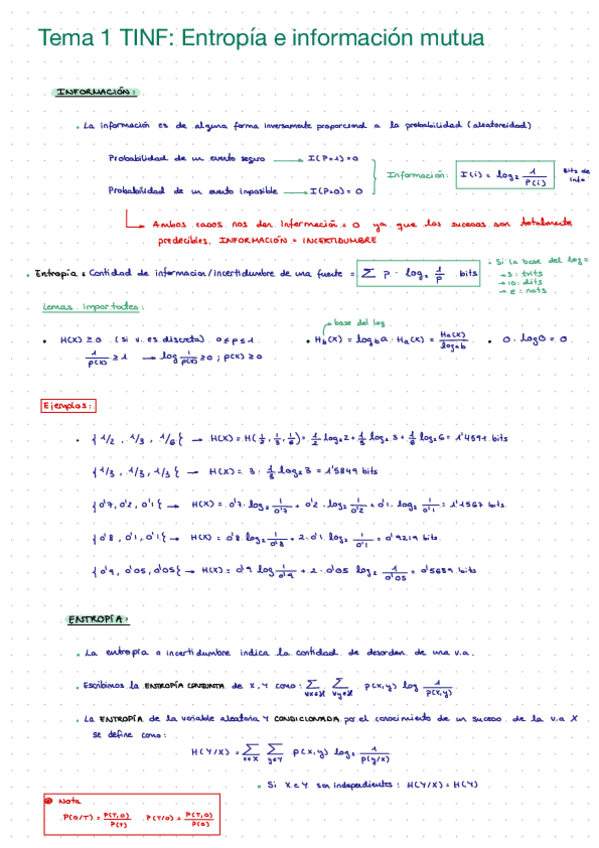 Tema 1 TINF: Entropía e información mutua
INFORMACIÓN:
• La información es de alguna forma inversamente proporcional a la probabilidad (aleatoriedad).
Probabilidad de un evento seguro → I(P=1)=0
Información: I(i) = log₂ 1/P(i) Bits de info
Probabilidad de un evento imposible → I(P=0) = 0
Ambos casos nos dan información = 0 ya que los sucesos son totalmente
predecibles. INFORMACIÓN = INCERTIDUMBRE
• Entropía = Cantidad de informacion/incertidumbre de una fuente = ∑ P · log₂ 1/P . bits
• Si la base del log =
→ 3: trits
→ 10: dits
→ e: nats
Lemas importantes:
base del log
• H(X) ≥ 0 (si v. es discreta) 0 ≤ p ≤ 1.
1/p(x) ≥ 1 → log 1/p(x) ≥ 0 ; p(x) ≥ 0
• H_b(X) = log_b a · H_a(X) = H_a(X)/log_a b
• 0 · log 0 = 0.
Ejemplos:
• {1/2, 1/3, 1/6} → H(X) = H(1/2, 1/3, 1/6) = 1/2 log₂2 + 1/3 log₂3 + 1/6 log₂6 = 1'4591 bits
{1/3, 1/3, 1/3} → H(X) = 3 · 1/3 log₂3 = 1'5849 bits
{0'7, 0'2, 0'1} → H(X) = 0'7 · log₂ 1/0'7 + 0'2 · log₂ 1/0'2 + 0'1 · log₂ 1/0'1 = 1'1567 bits
{0'8, 0'1, 0'1} → H(X) = 0'8 log₂ 1/0'8 + 2 · 0'1 log₂ 1/0'1 = 0'9219 bits.
{0'9, 0'05, 0'05} → H(X) = 0'9 log 1/0'9 + 2 · 0'05 log₂ 1/0'05 = 0'5689 bits
ENTROPÍA:
• La entropía o incertidumbre indica la cantidad de desorden de una v.a.
• Escribimos la ENTROPÍA CONJUNTA de X, Y como: ∑ ∑ p(x,y) log 1/p(x,y)
• La ENTROPÍA de la variable aleatoria Y CONDICIONADA por el conocimiento de un suceso de la v.a X
se define como:
H(Y/X) = ∑x∈X ∑y∈Y p(x,y) log₂ 1/p(y/x)
• Si X e Y son independientes: H(Y/X) = H(Y)
Nota
P(0/T) = P(T,0)/P(T) . P(T/0) = P(T,0)/P(0)